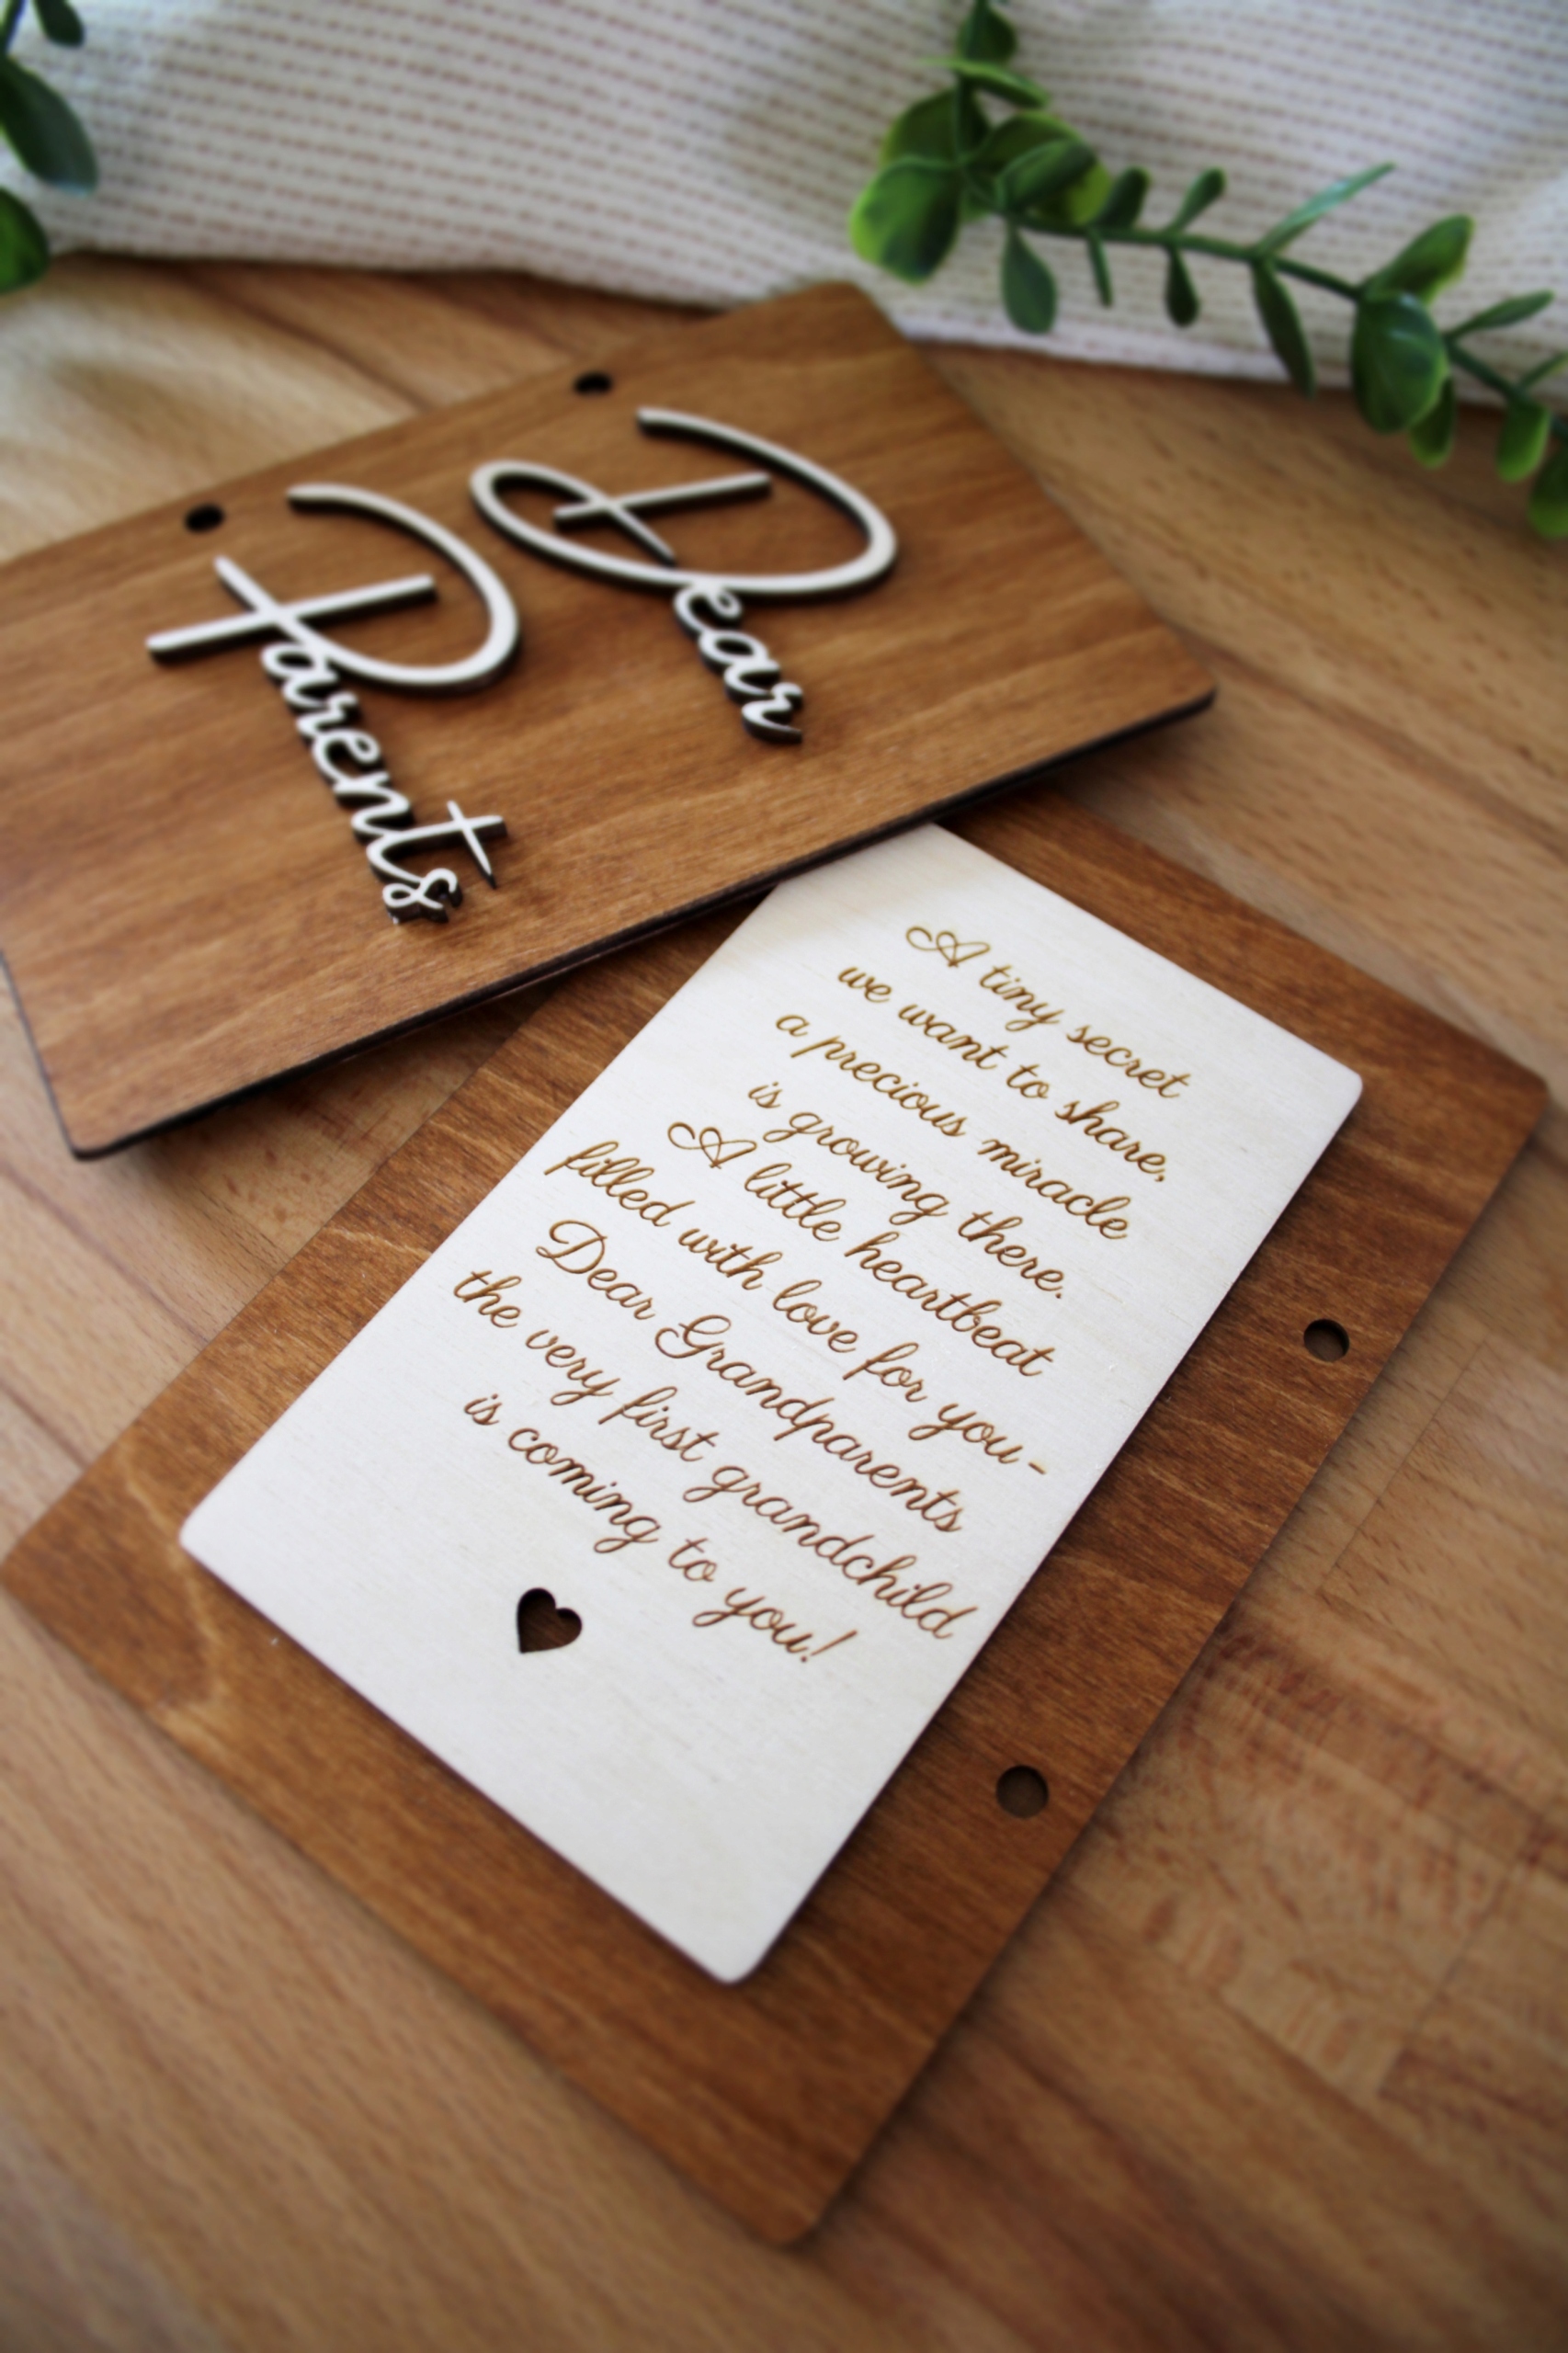 Dear
Parents
A tiny secret
we want to share,
a precious miracle
is growing there.
A little heartbeat
filled with love for you-
Dear Grandparents
the very first grandchild
is coming to you!